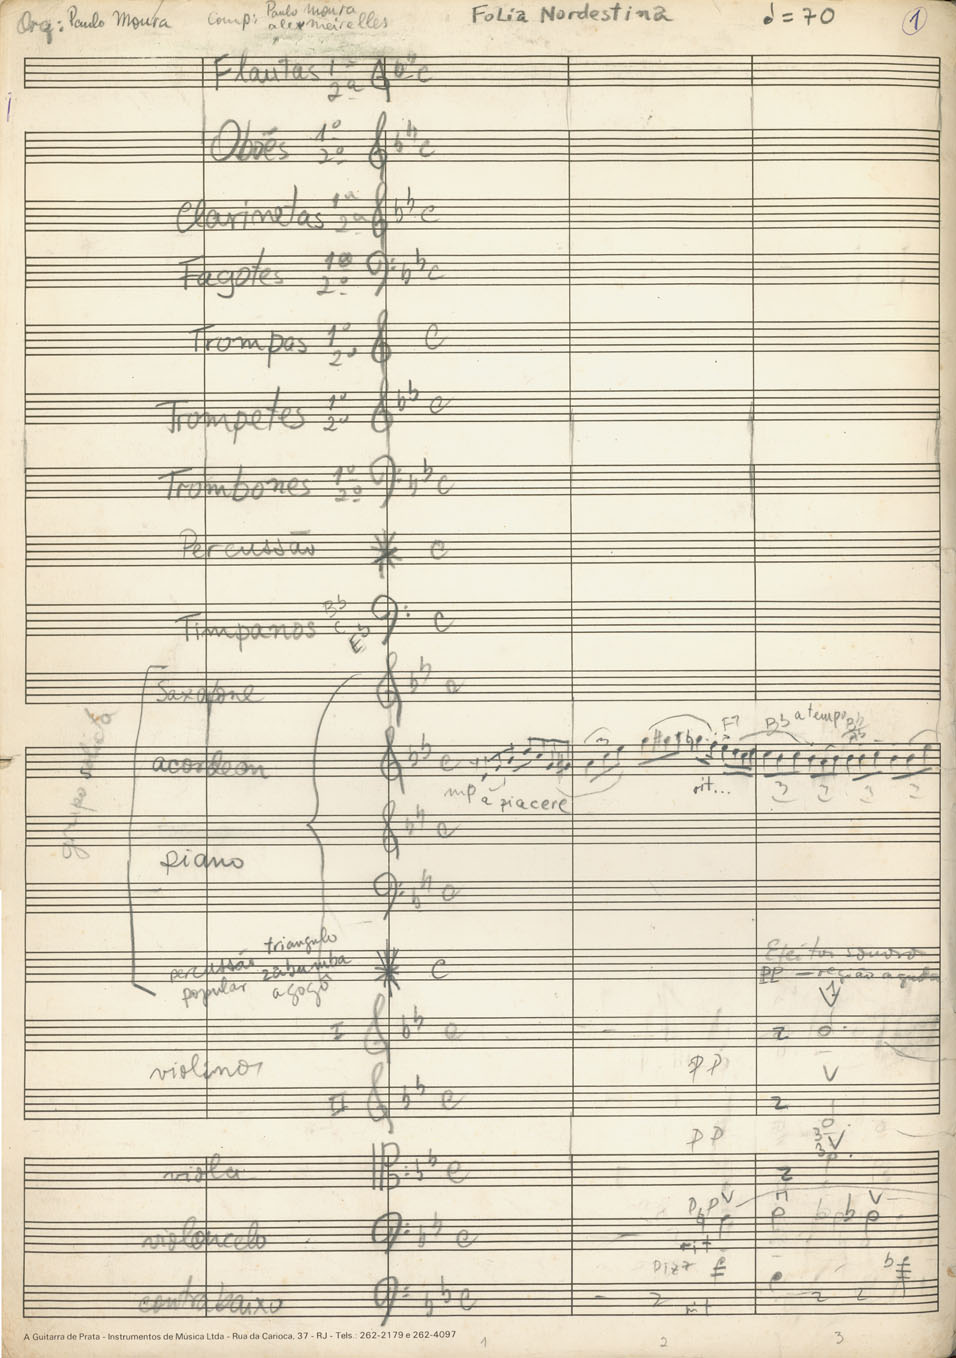 Orq: Paulo Moura
Comp: Paulo Moura
alex meirelles
Folia Nordestina
♩=70
1
Flautas 1ª
2ª
Oboés 1º
2º
Clarinetas 1ª
2ª
Fagotes 1º
2º
Trompas 1º
2º
Trompetes 1º
2º
Trombones 1º
2º
Percussão
Timpanos Bb
C
Eb
grupo solista
Saxofone
acordeon
mp a piacere
rit...
F7
Bb a tempo
3
3 3 3 3
piano
percussão
popular
triangulo
zabumba
agogô
Efeitos sonoro
PP — região aguda
violinos
I
II
PP
PP
viola
violoncelo
PP
rit
contrabaixo
Pizz
rit
A Guitarra de Prata - Instrumentos de Música Ltda - Rua da Carioca, 37 - RJ - Tels.: 262-2179 e 262-4097
1 2 3